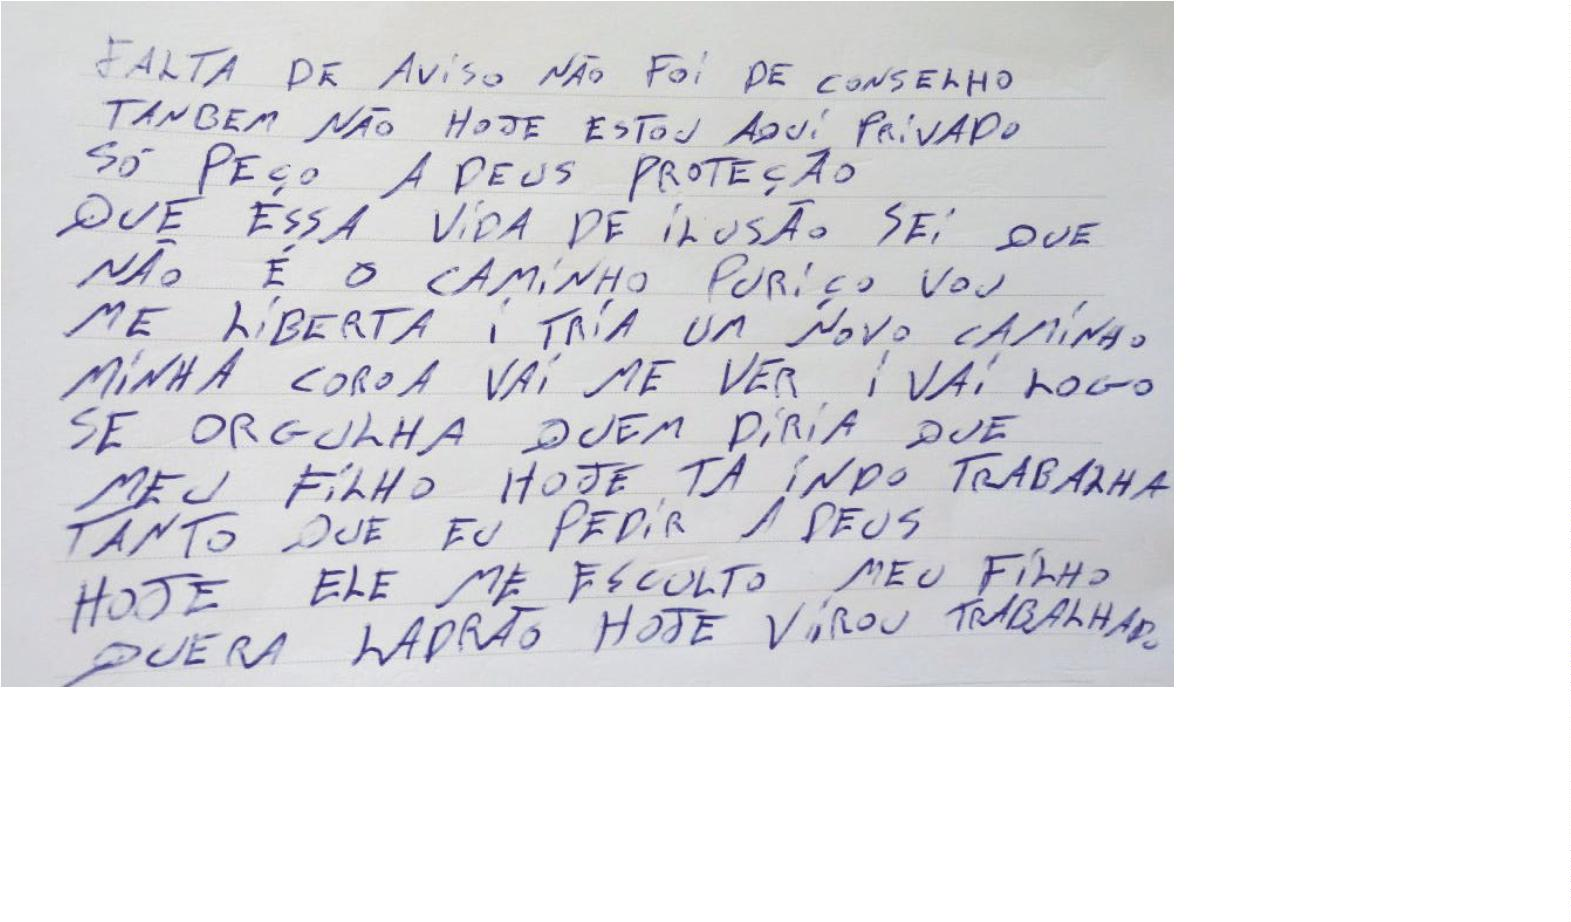 FALTA DE AVISO NÃO FOI DE CONSELHO
TANBEM NÃO HOJE ESTOU AQUI PRIVADO
SÓ PEÇO A DEUS PROTEÇÃO
QUE ESSA VIDA DE ILUSÃO SEI QUE
NÃO É O CAMINHO PURIÇO VOU
ME LIBERTA I TRIA UM NOVO CAMINHO
MINHA COROA VAI ME VER I VAI LOGO
SE ORGULHA QUEM DIRIA QUE
MEU FILHO HOJE TA INDO TRABALHA
TANTO QUE EU PEDIR A DEUS
HOJE ELE ME ESCULTO MEU FILHO
QUERA LADRÃO HOJE VIROU TRABALHADO